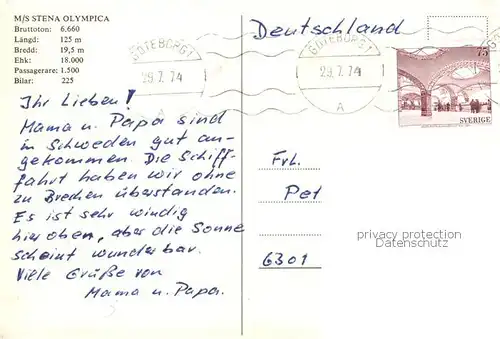 M/S STENA OLYMPICA
Bruttoton: 6.660
Längd: 125 m
Bredd: 19,5 m
Ehk: 18.000
Passagerare: 1.500
Bilar: 225
Ihr Lieben!
Mama u. Papa sind
in Schweden gut an-
gekommen. Die Schiff-
fahrt haben wir ohne
zu Brechen überstanden.
Es ist sehr windig
hier oben, aber die Sonne
scheint wunderbar.
Viele Grüße von
Mama u. Papa.
Deutschland
GÖTEBORG 1
29.7.74
A
GÖTEBORG 1
29.7.74
A
75
SVERIGE
Frl.
Pet
privacy protection
Datenschutz
6301